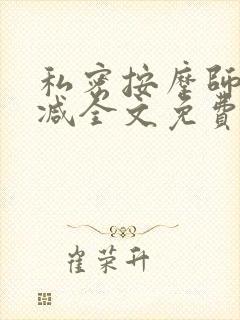 私密按摩師
减全文免費
崔荣升